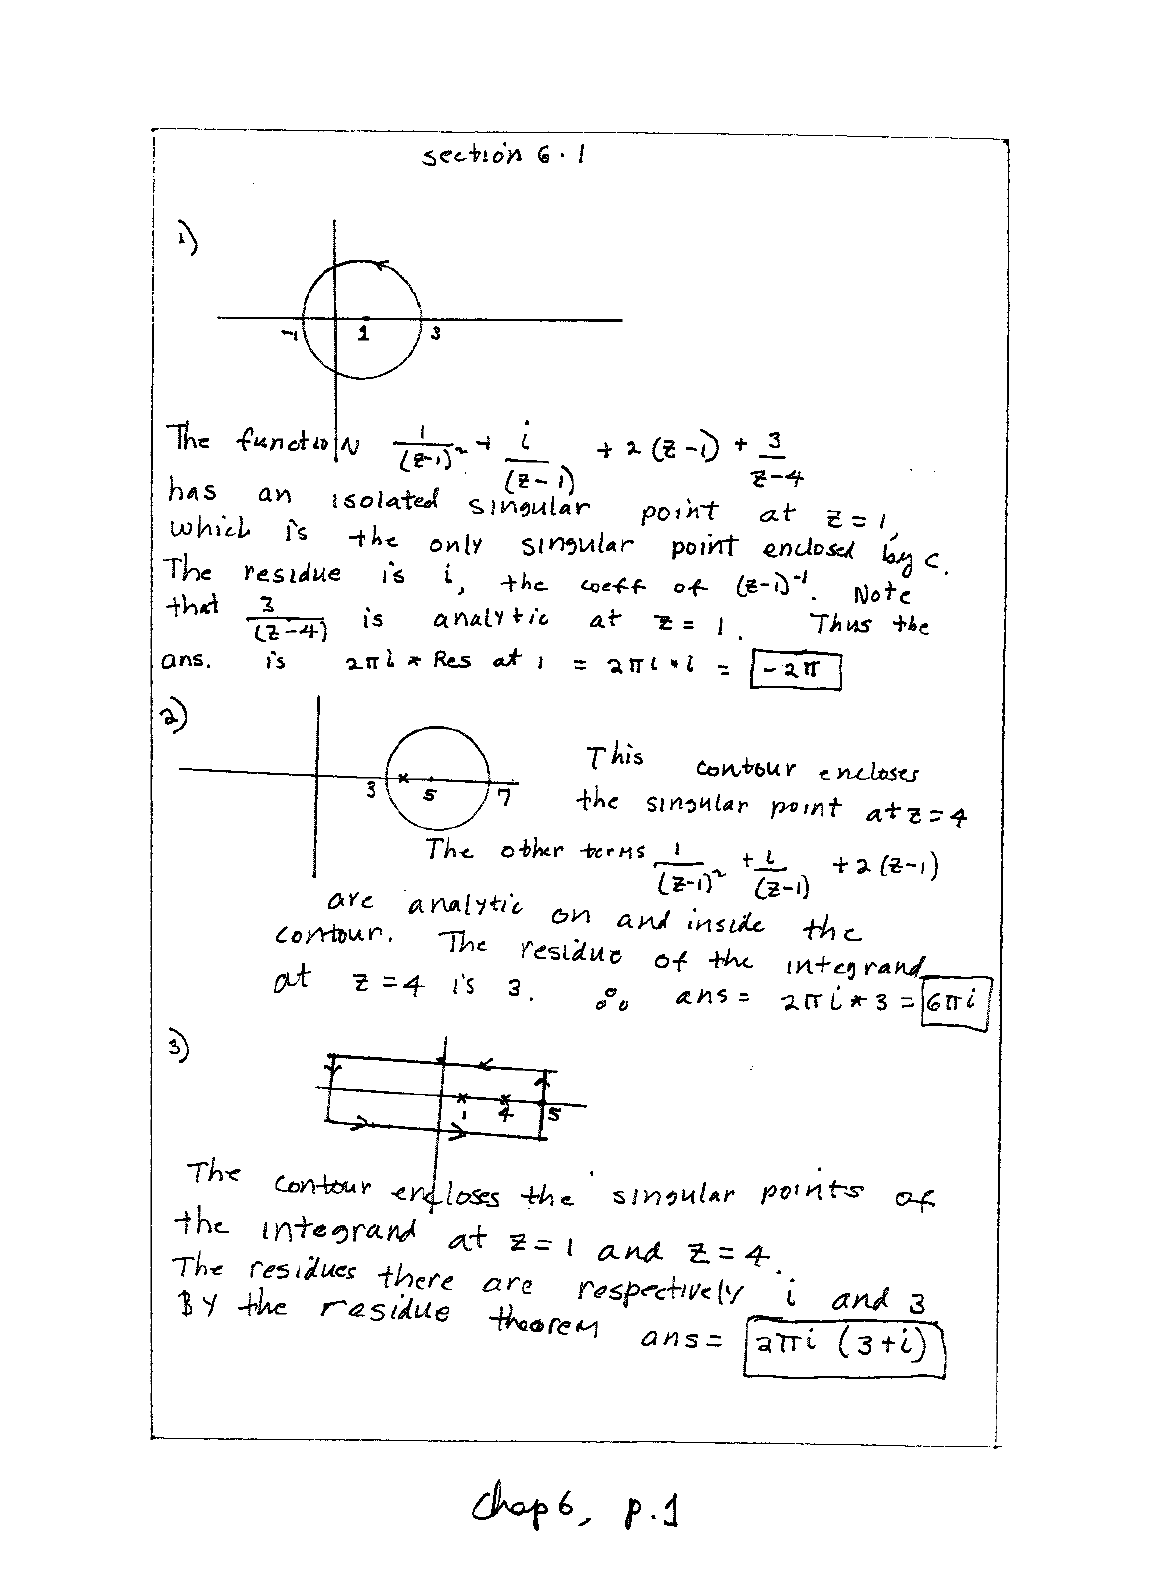 section 6.1
1)
-1 1 3
The function 1/(z-1)² + i/(z-1) + 2(z-1) + 3/z-4
has an isolated singular point at z=1,
which is the only singular point enclosed by C.
The residue is i, the coeff of (z-1)⁻¹. Note
that 3/(z-4) is analytic at z=1. Thus the
ans. is 2πi * Res at 1 = 2πi * i = -2π
2)
3 5 7
This contour encloses
the singular point at z=4
The other terms 1/(z-1)² + i/(z-1) + 2(z-1)
are analytic on and inside the
contour. The residue of the integrand
at z=4 is 3. ∴ ans = 2πi * 3 = 6πi
3)
1 4 5
The contour encloses the singular points of
the integrand at z=1 and z=4.
The residues there are respectively i and 3
By the residue theorem ans = 2πi (3+i)
Chap 6, p.1